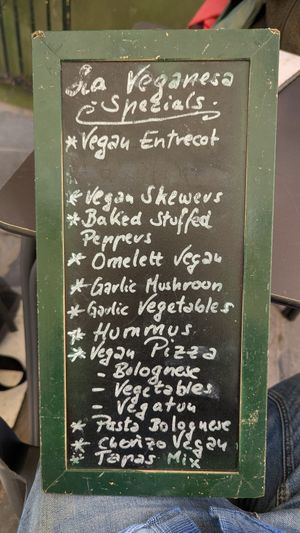 La Veganesa
Spezials.
* Vegan Entrecot
* Vegan Skewers
* Baked Stuffed
Peppers
* Omelett Vegan
* Garlic Mushroon
* Garlic Vegetables
* Hummus
* Vegan Pizza
- Bolognese
- Vegetables
- Vegatun
* Pasta Bolognese
* Chorizo Vegan
* Tapas Mix